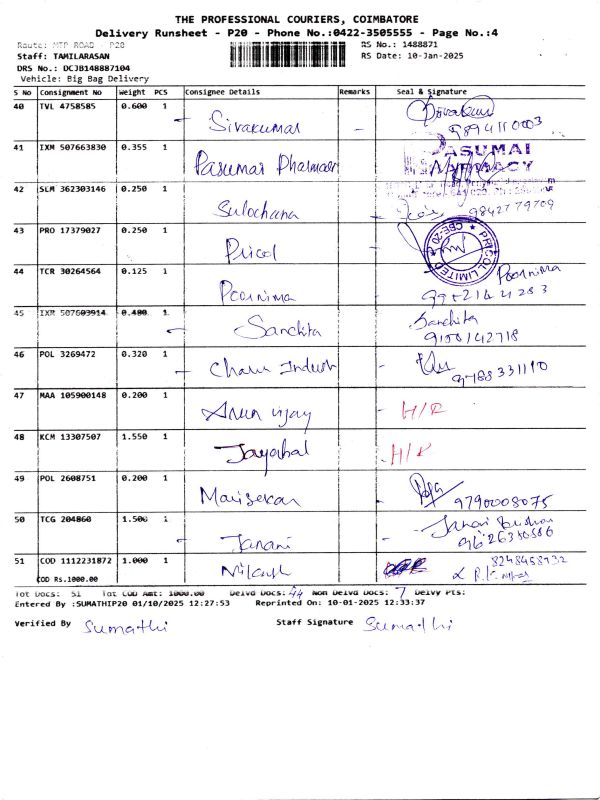 THE PROFESSIONAL COURIERS, COIMBATORE
Delivery Runsheet - P20 - Phone No.:0422-3505555 - Page No.:4
Route: MTP ROAD - P20 RS No.: 1488871
Staff: TAMILARASAN RS Date: 10-Jan-2025
DRS No.: DCJB148887104
Vehicle: Big Bag Delivery
S No Consignment No Weight PCS Consignee Details Remarks Seal & Signature
40 TVL 4758585 0.600 1 Sivakumar
9894110003
41 IXM 507663830 0.355 1 Pasumai Pharmacy PASUMAI
PHARMACY
42 SLM 362303146 0.250 1 Sulochana 9842779709
43 PRO 17379027 0.250 1 Pricol PRICOL LIMITED CBE-20
44 TCR 30264564 0.125 1 Poornima Poornima
45 IXR 507603914 0.480 1 Sanchita Sanchita
9100142718
46 POL 3269472 0.320 1 9788331110
47 MAA 105900148 0.200 1 Arun vijay - H/R
48 KCM 13307507 1.550 1 Jayabal - H/R
49 POL 2608751 0.200 1 Marisekar 9790008075
50 TCG 204860 1.500 1 Janani
51 COD 1112231872 1.000 1
COD Rs.1000.00
Tot Docs: 51 Tot COD Amt: 1000.00 Delvd Docs: 44 Non Delvd Docs: 7 Delvy Pts:
Entered By :SUMATHIP20 01/10/2025 12:27:53 Reprinted On: 10-01-2025 12:33:37
Verified By Sumathi Staff Signature Sumathi